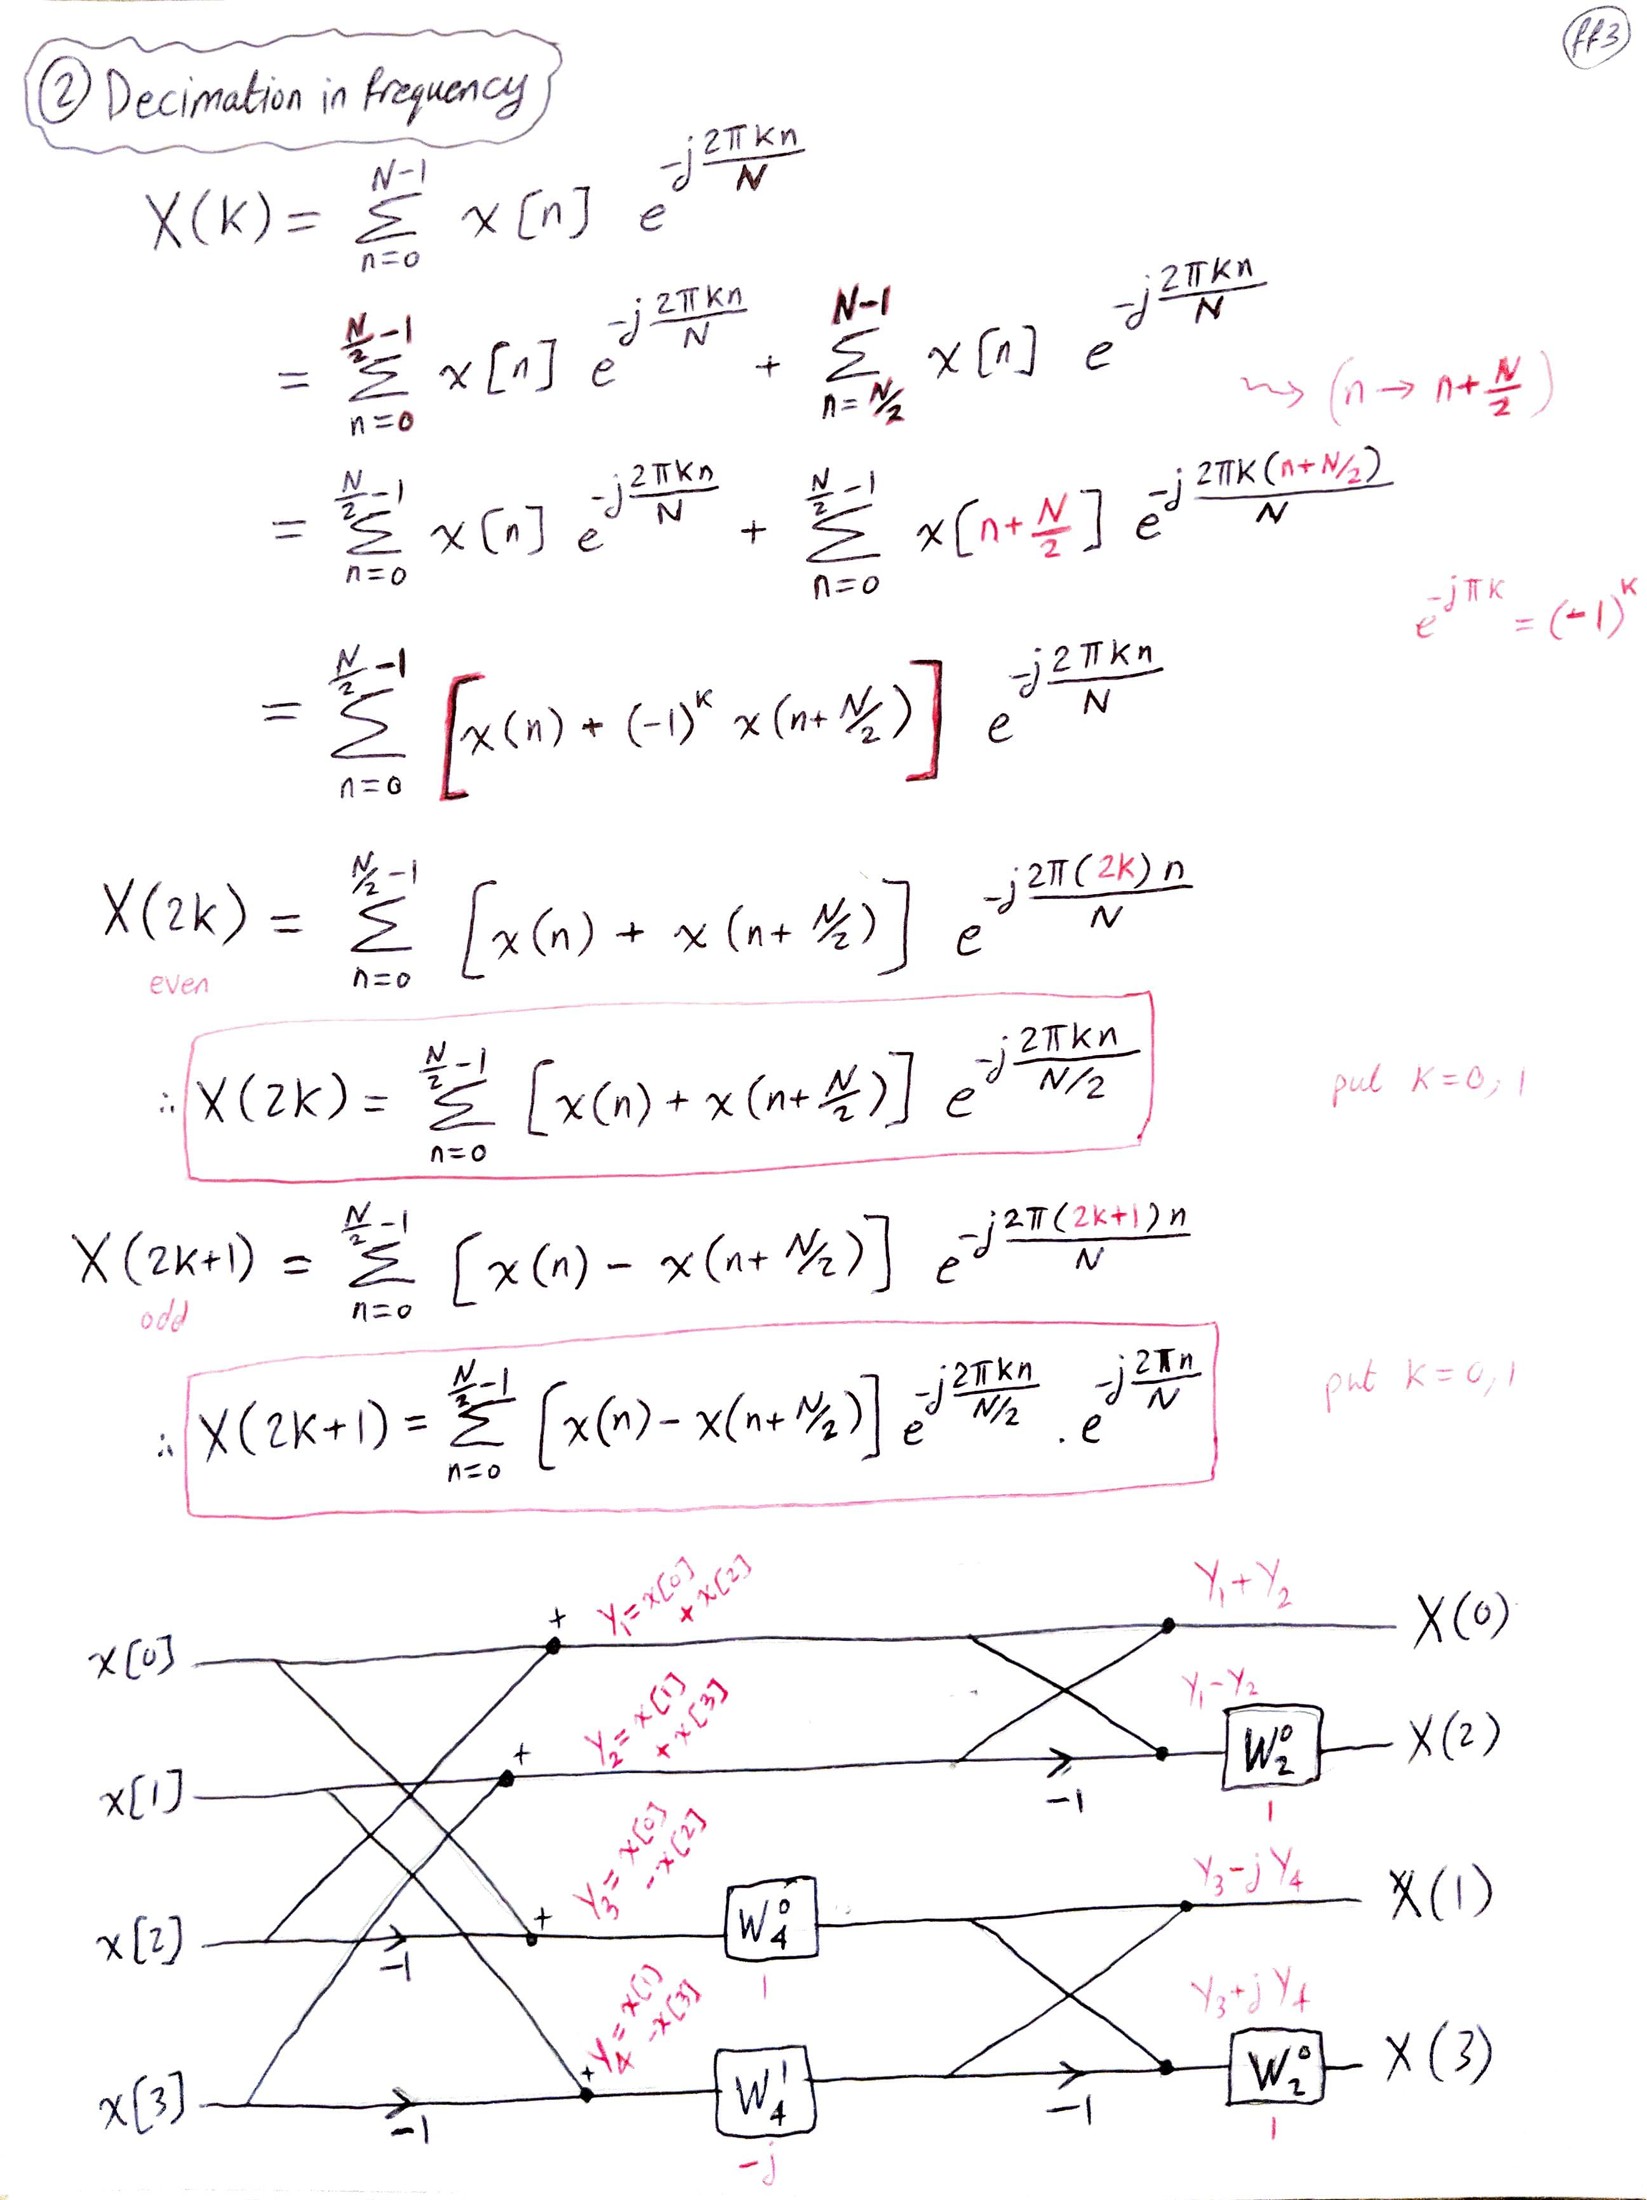 ff3
② Decimation in frequency
X(k) = Σ_{n=0}^{N-1} x[n] e^{-j 2πkn/N}
= Σ_{n=0}^{N/2 -1} x[n] e^{-j 2πkn/N} + Σ_{n=N/2}^{N-1} x[n] e^{-j 2πkn/N} ⇝ (n → n+N/2)
= Σ_{n=0}^{N/2 -1} x[n] e^{-j 2πkn/N} + Σ_{n=0}^{N/2 -1} x[n+N/2] e^{-j 2πk(n+N/2)/N}
e^{-jπk} = (-1)^k
= Σ_{n=0}^{N/2 -1} [x(n) + (-1)^k x(n+N/2)] e^{-j 2πkn/N}
X(2k) = Σ_{n=0}^{N/2 -1} [x(n) + x(n+N/2)] e^{-j 2π(2k)n/N}
even
∴ X(2k) = Σ_{n=0}^{N/2 -1} [x(n) + x(n+N/2)] e^{-j 2πkn/(N/2)} put k=0,1
X(2k+1) = Σ_{n=0}^{N/2 -1} [x(n) - x(n+N/2)] e^{-j 2π(2k+1)n/N}
odd
∴ X(2k+1) = Σ_{n=0}^{N/2 -1} [x(n) - x(n+N/2)] e^{-j 2πkn/(N/2)} . e^{-j 2πn/N} put k=0,1
x[0] + Y₁ = x[0] + x[2] Y₁+Y₂ X(0)
x[1] + Y₂ = x[1] + x[3] -1 Y₁-Y₂ W₂⁰ 1 X(2)
x[2] -1 + Y₃ = x[0] - x[2] W₄⁰ 1 Y₃-jY₄ X(1)
x[3] -1 + Y₄ = x[1] - x[3] W₄¹ -j -1 Y₃+jY₄ W₂⁰ 1 X(3)